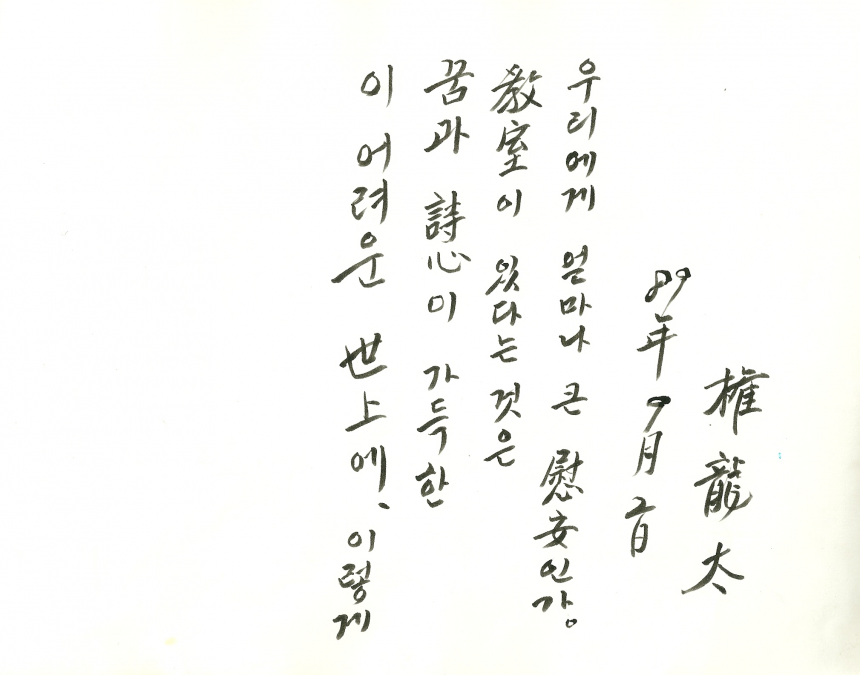 이 어려운 世上에, 이렇게
꿈과 詩心이 가득한
教室이 있다는 것은
우리에게 얼마나 큰 慰安인가。
89年 9月 2日
權龍太